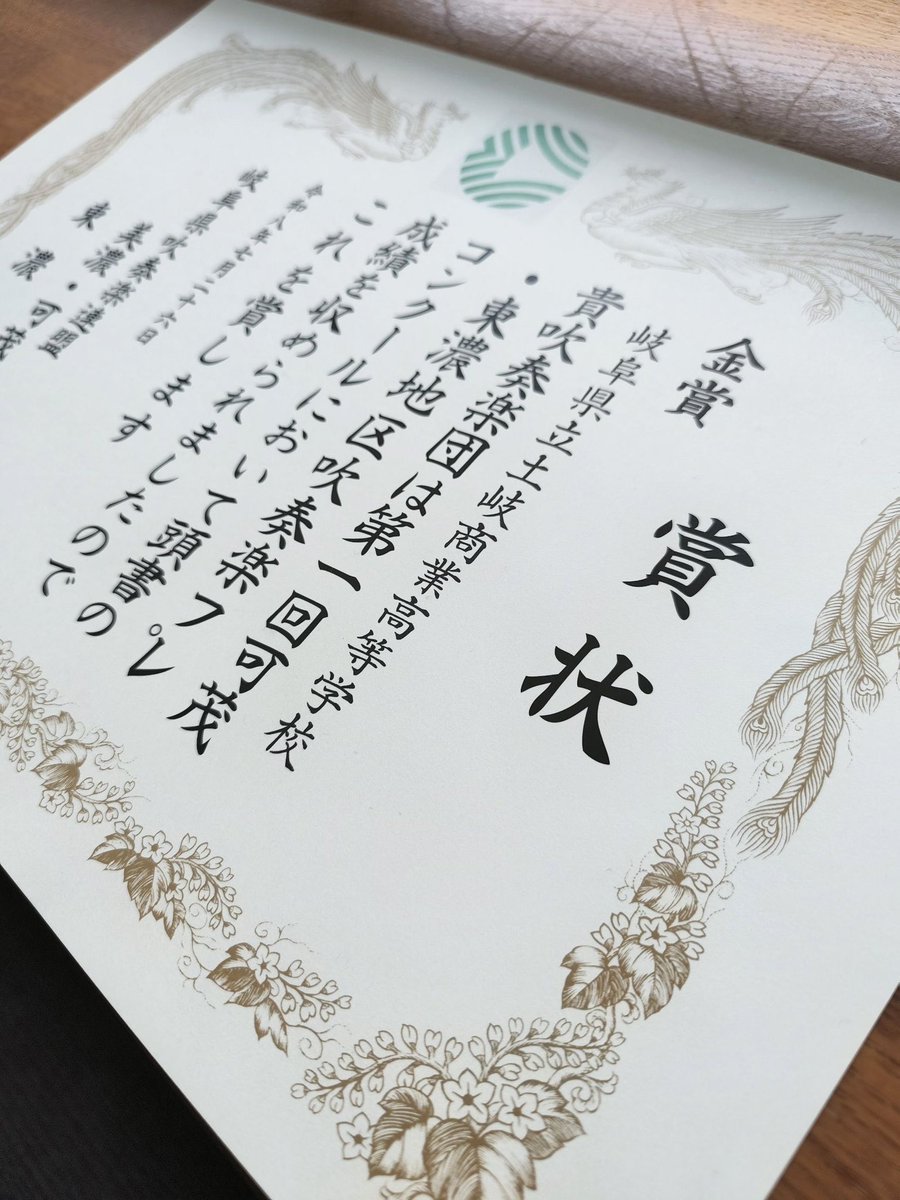 賞状
金賞
岐阜県立土岐商業高等学校
貴吹奏楽団は第一回可茂
・東濃地区吹奏楽プレ
コンクールにおいて頭書の
成績を収められましたので
これを賞します
令和八年七月二十六日
岐阜県吹奏楽連盟
美濃・可茂
東濃